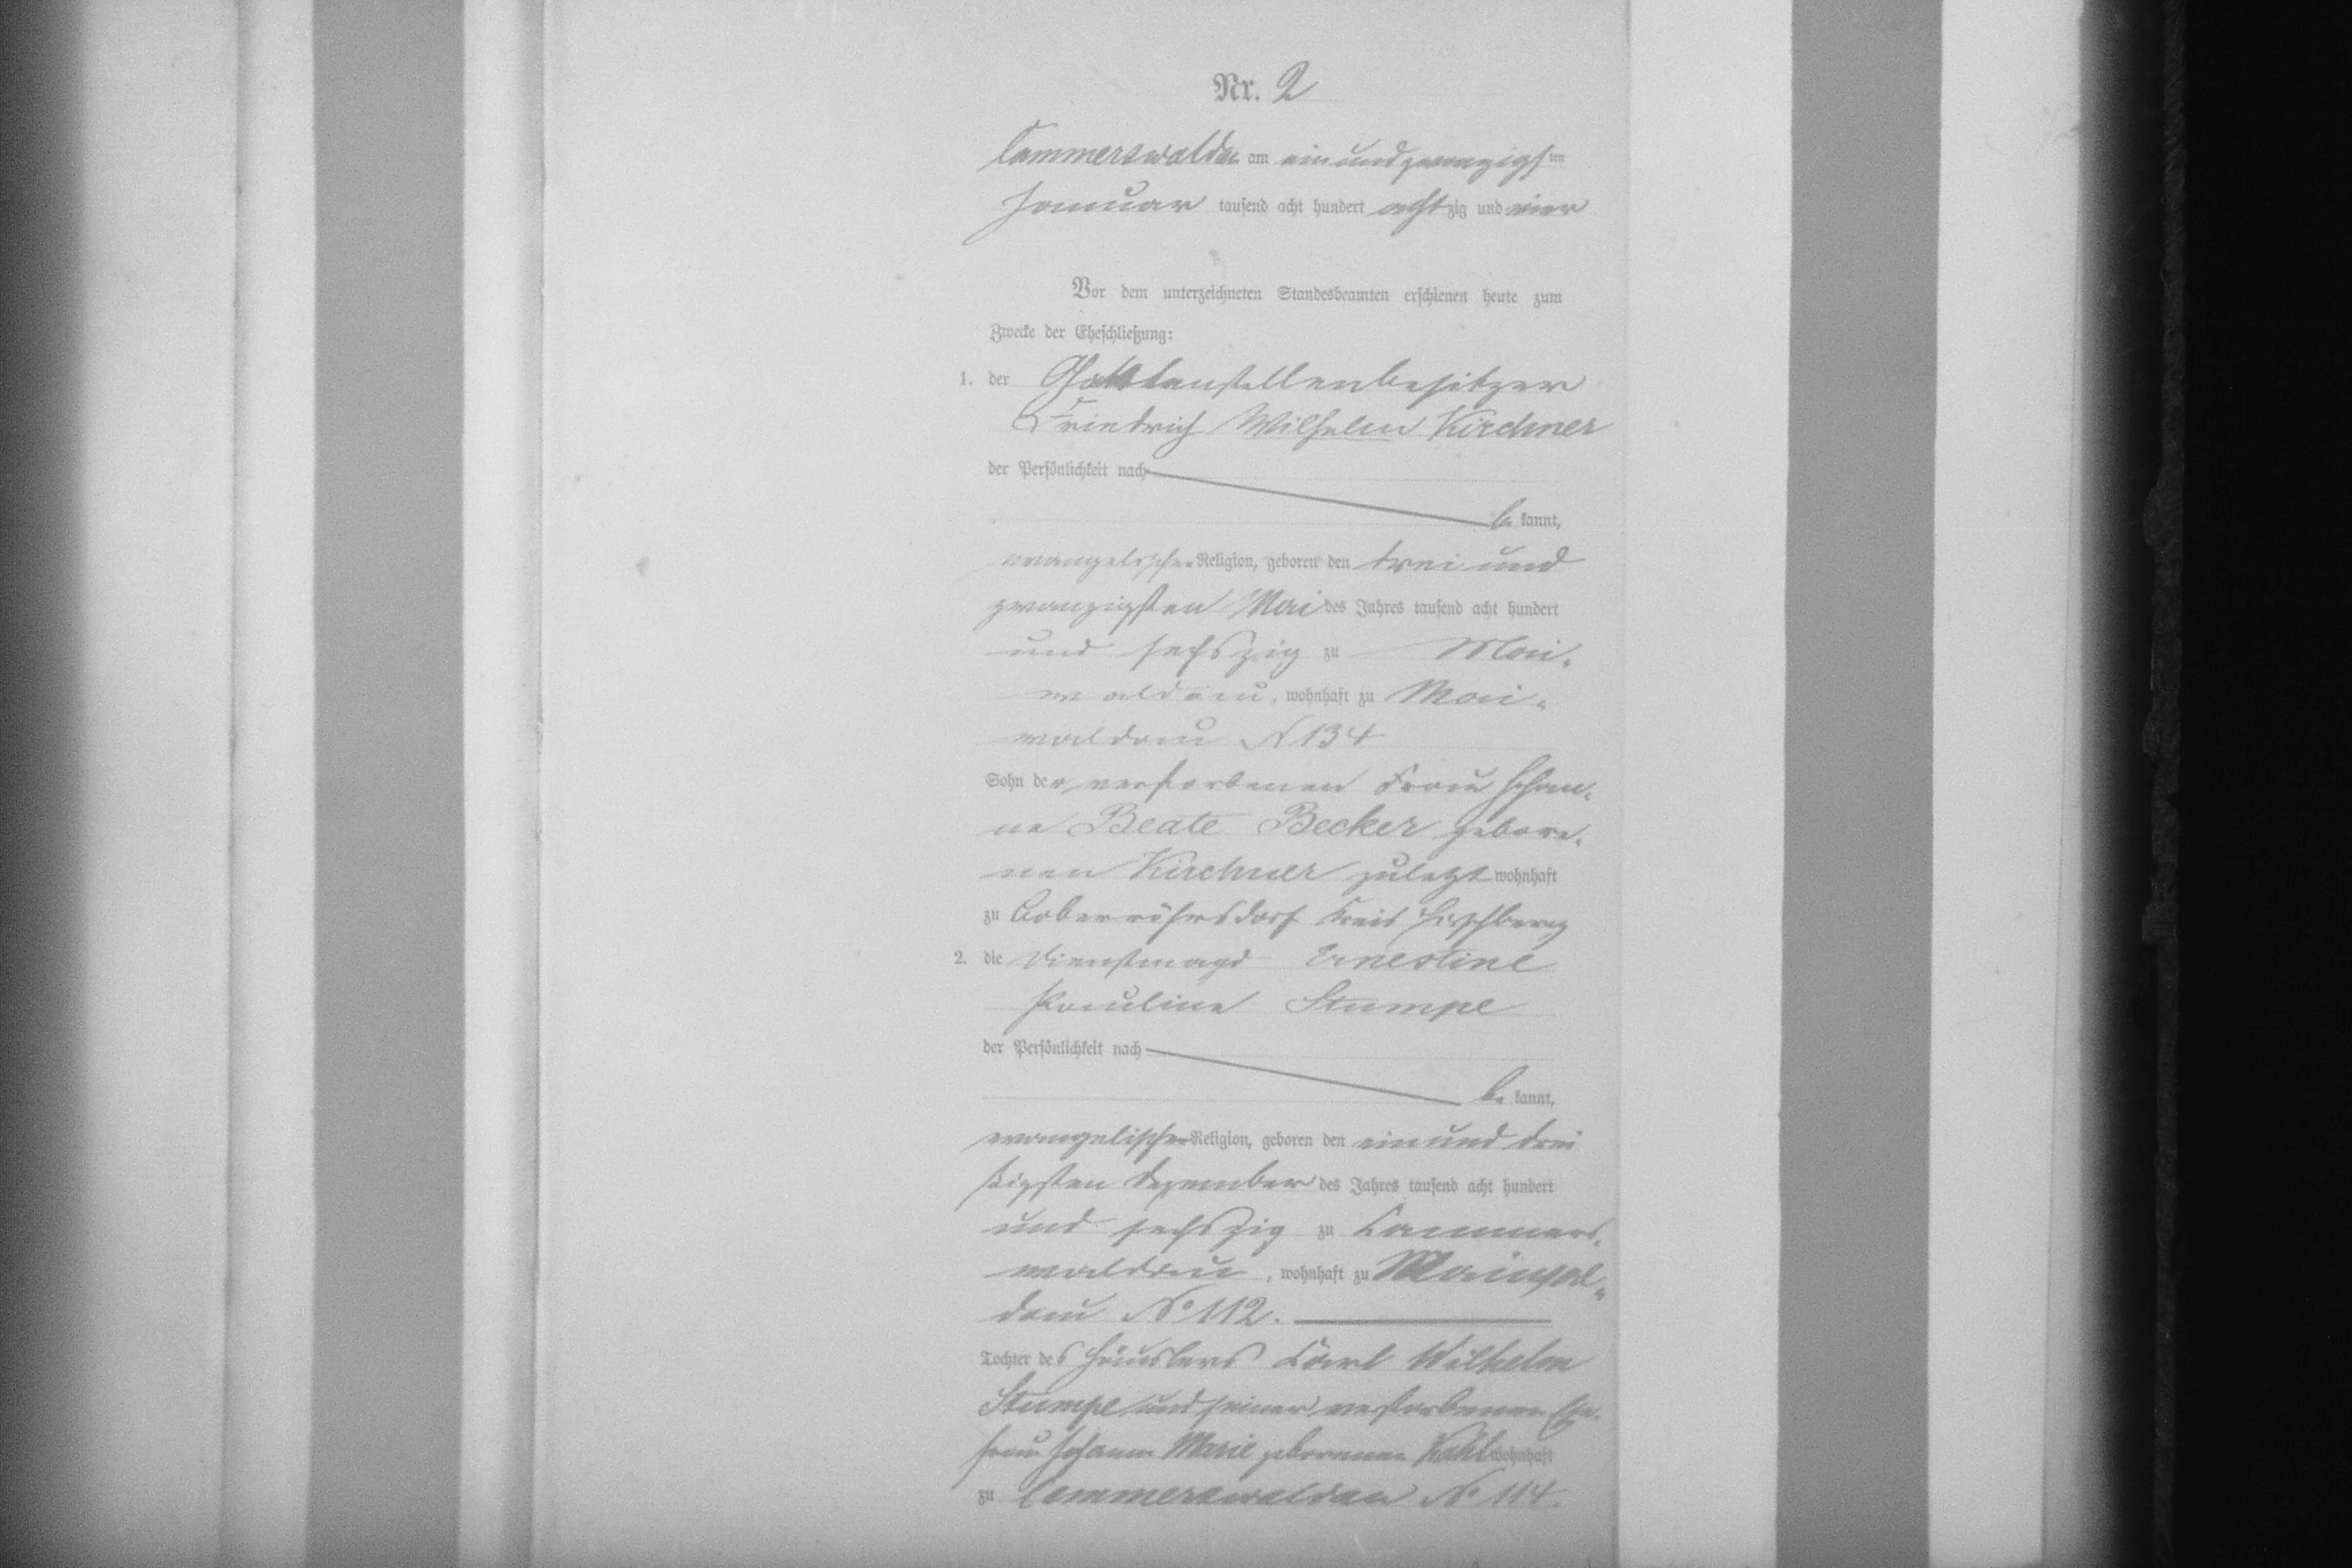 Nr. 2
Cammerswaldau am ein und zwanzigsten
Januar tausend acht hundert achtzig und vier
Vor dem unterzeichneten Standesbeamten erschienen heute zum
Zwecke der Eheschließung:
1. der
Friedrich Wilhelm Kirchner
der Persönlichkeit nach
be kannt,
evangelischer Religion, geboren den drei und
zwanzigsten Mai des Jahres tausend acht hundert
und sechszig zu Mai-
waldau, wohnhaft zu Mai-
waldau N 134
Sohn der verstorbenen Frau Johan-
ne Beate Becker gebore-
nen Kirchner zuletzt wohnhaft
zu Boberröhrsdorf Kreis Hirschberg
2. die Dienstmagd Ernestine
Pauline Stumpe
der Persönlichkeit nach
be kannt,
evangelischer Religion, geboren den ein und drei
ßigsten Dezember des Jahres tausend acht hundert
und sechszig zu Cammers-
waldau, wohnhaft zu Maiwal-
dau No 112.
Tochter des Häuslers Carl Wilhelm
Stumpe und seiner verstorbenen Ehe-
frau Johanne Marie geborenen Kahl wohnhaft
zu Cammerswaldau No 114.